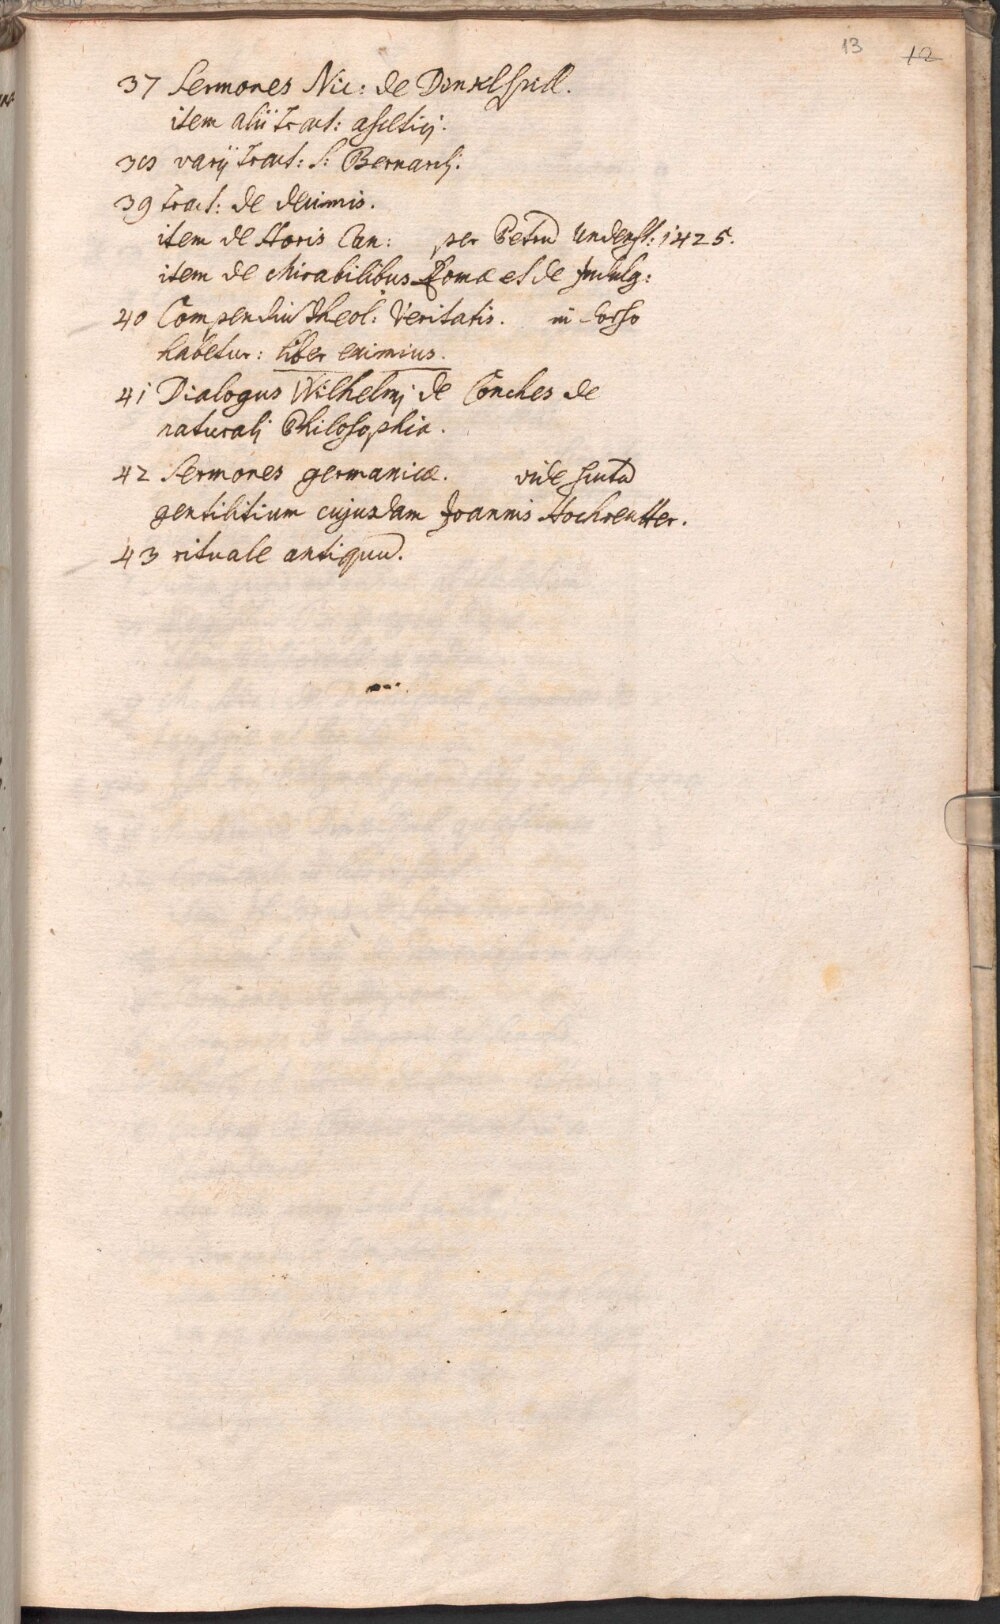 13 12
37 Sermones Nic: de Dinkelspill.
item alii Tract: ascetici.
38 varii Tract: S: Bernardj.
39 Tract: de decimis.
item de Horis Can: per Petrū Undenst: 1425.
item de Mirabilibus Romæ et de Indulg:
40 Compendiū Theol: Veritatis. in dorso
habetur: liber eximius.
41 Dialogus Wilhelmj de Conches de
naturalj Philosophia.
42 Sermones germanicæ. vide scutū
gentilitium cujusdam Joannis Hochreutter.
43 rituale antiquū.